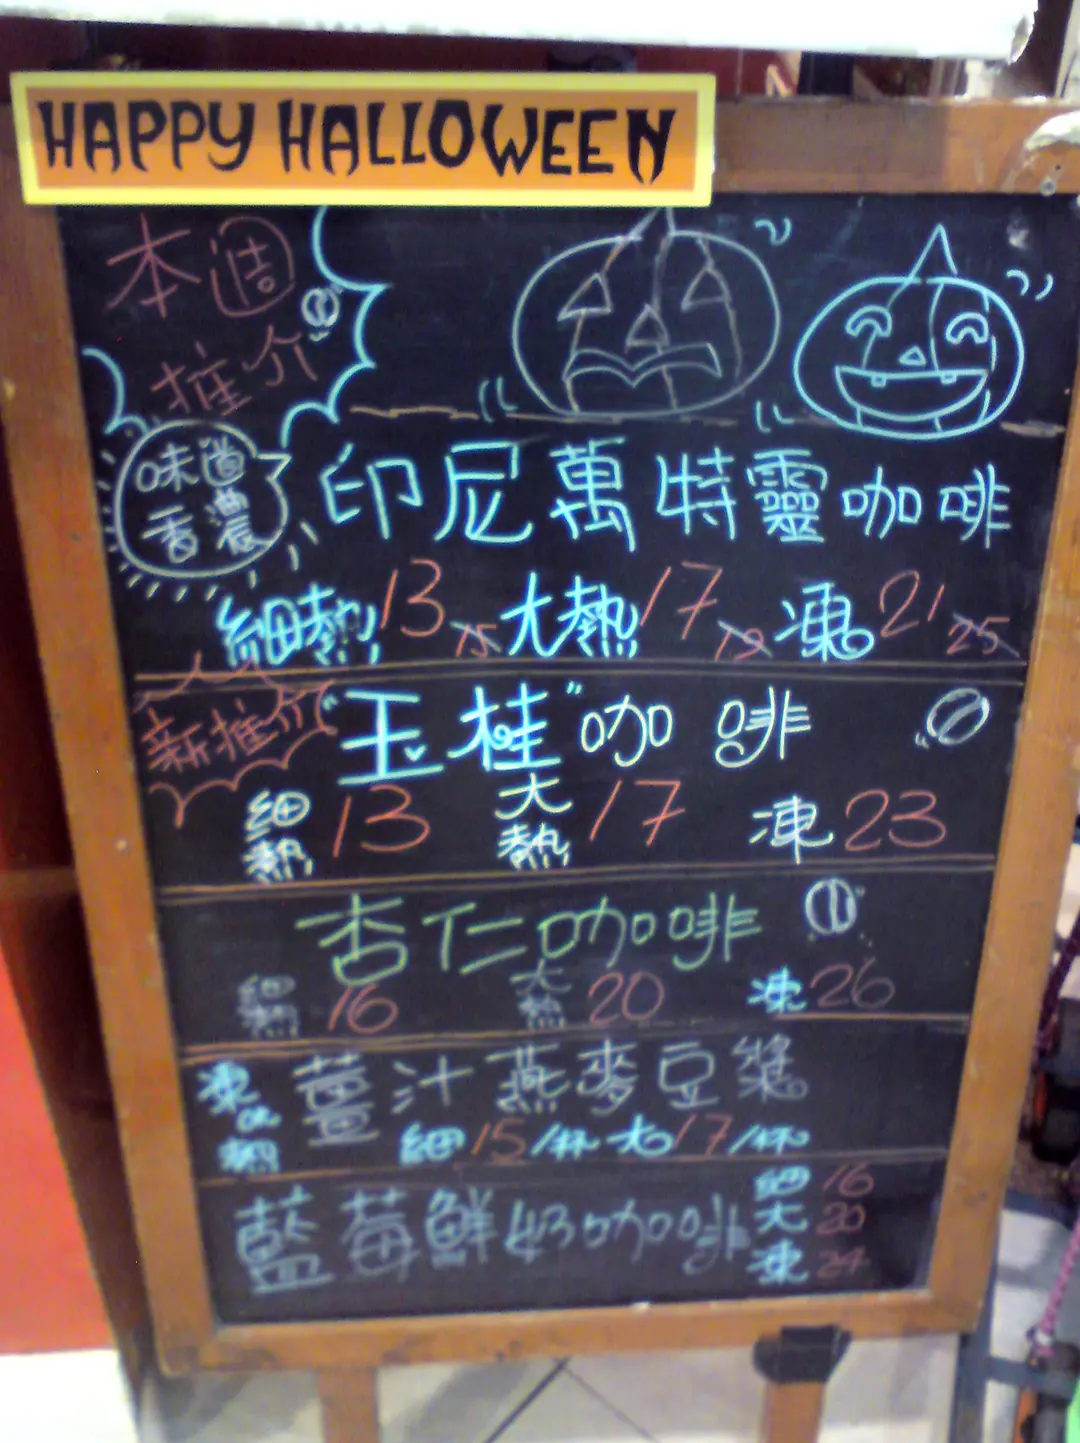 HAPPY HALLOWEEN
本週
推介
味道
香濃
印尼萬特靈咖啡
細熱 13 15 大熱 17 19 凍 21 25
新推介 "玉桂"咖啡
細熱 13 大熱 17 凍 23
杏仁咖啡
細熱 16 大熱 20 凍 26
凍or熱 薑汁燕麥豆漿
細 15/杯 大 17/杯
藍莓鮮奶咖啡
細 16
大 20
凍 24